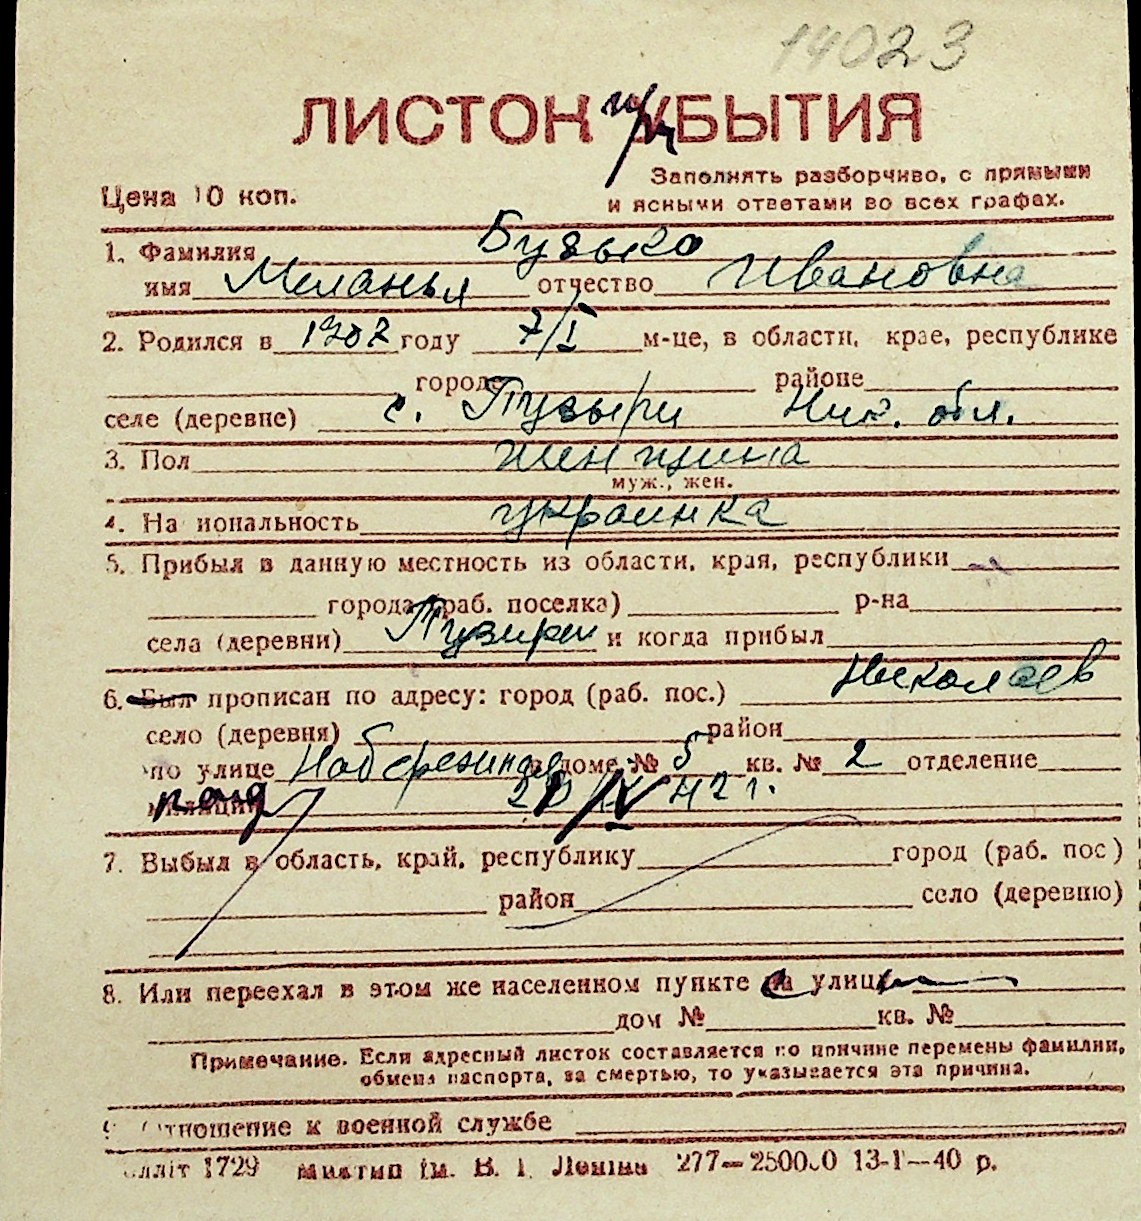 14023
ЛИСТОК УБЫТИЯ
при
Цена 10 коп.
Заполнять разборчиво, с прямыми
и ясными ответами во всех графах.
1. Фамилия Бузыко
имя Меланья отчество Ивановна
2. Родился в 1902 году 7/I м-це, в области, крае, республике
городе районе
селе (деревне) с. Пузыри Ник. обл.
3. Пол женщина
муж., жен.
4. На иональность украинка
5. Прибыл в данную местность из области, края, республики
города (раб. поселка) р-на
села (деревни) Пузыри и когда прибыл
6. Был прописан по адресу: город (раб. пос.) Николаев
село (деревня) район
по улице Набережная в доме № 5 кв. № 2 отделение
милиции 20/IV 42 г.
7. Выбыл в область, край, республику город (раб. пос)
район село (деревню)
8. Или переехал в этом же населенном пункте на улицу
дом № кв. №
Примечание. Если адресный листок составляется по причине перемены фамилии,
обмена паспорта, за смертью, то указывается эта причина.
9. Отношение к военной службе
лліт 1729 ім. В. І. Леніна 277—250000 13-І—40 р.